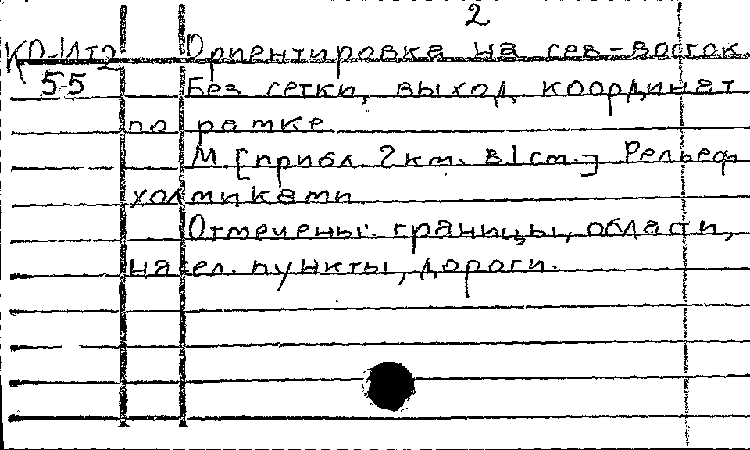 2
КО-Ит2 Ориентировка на сев-восток.
5-5 Без сетки, выход координат
по рамке
М. [прибл. 2км. в 1см.] Рельеф
холмиками
Отмечены: границы, области,
насел. пункты, дороги.